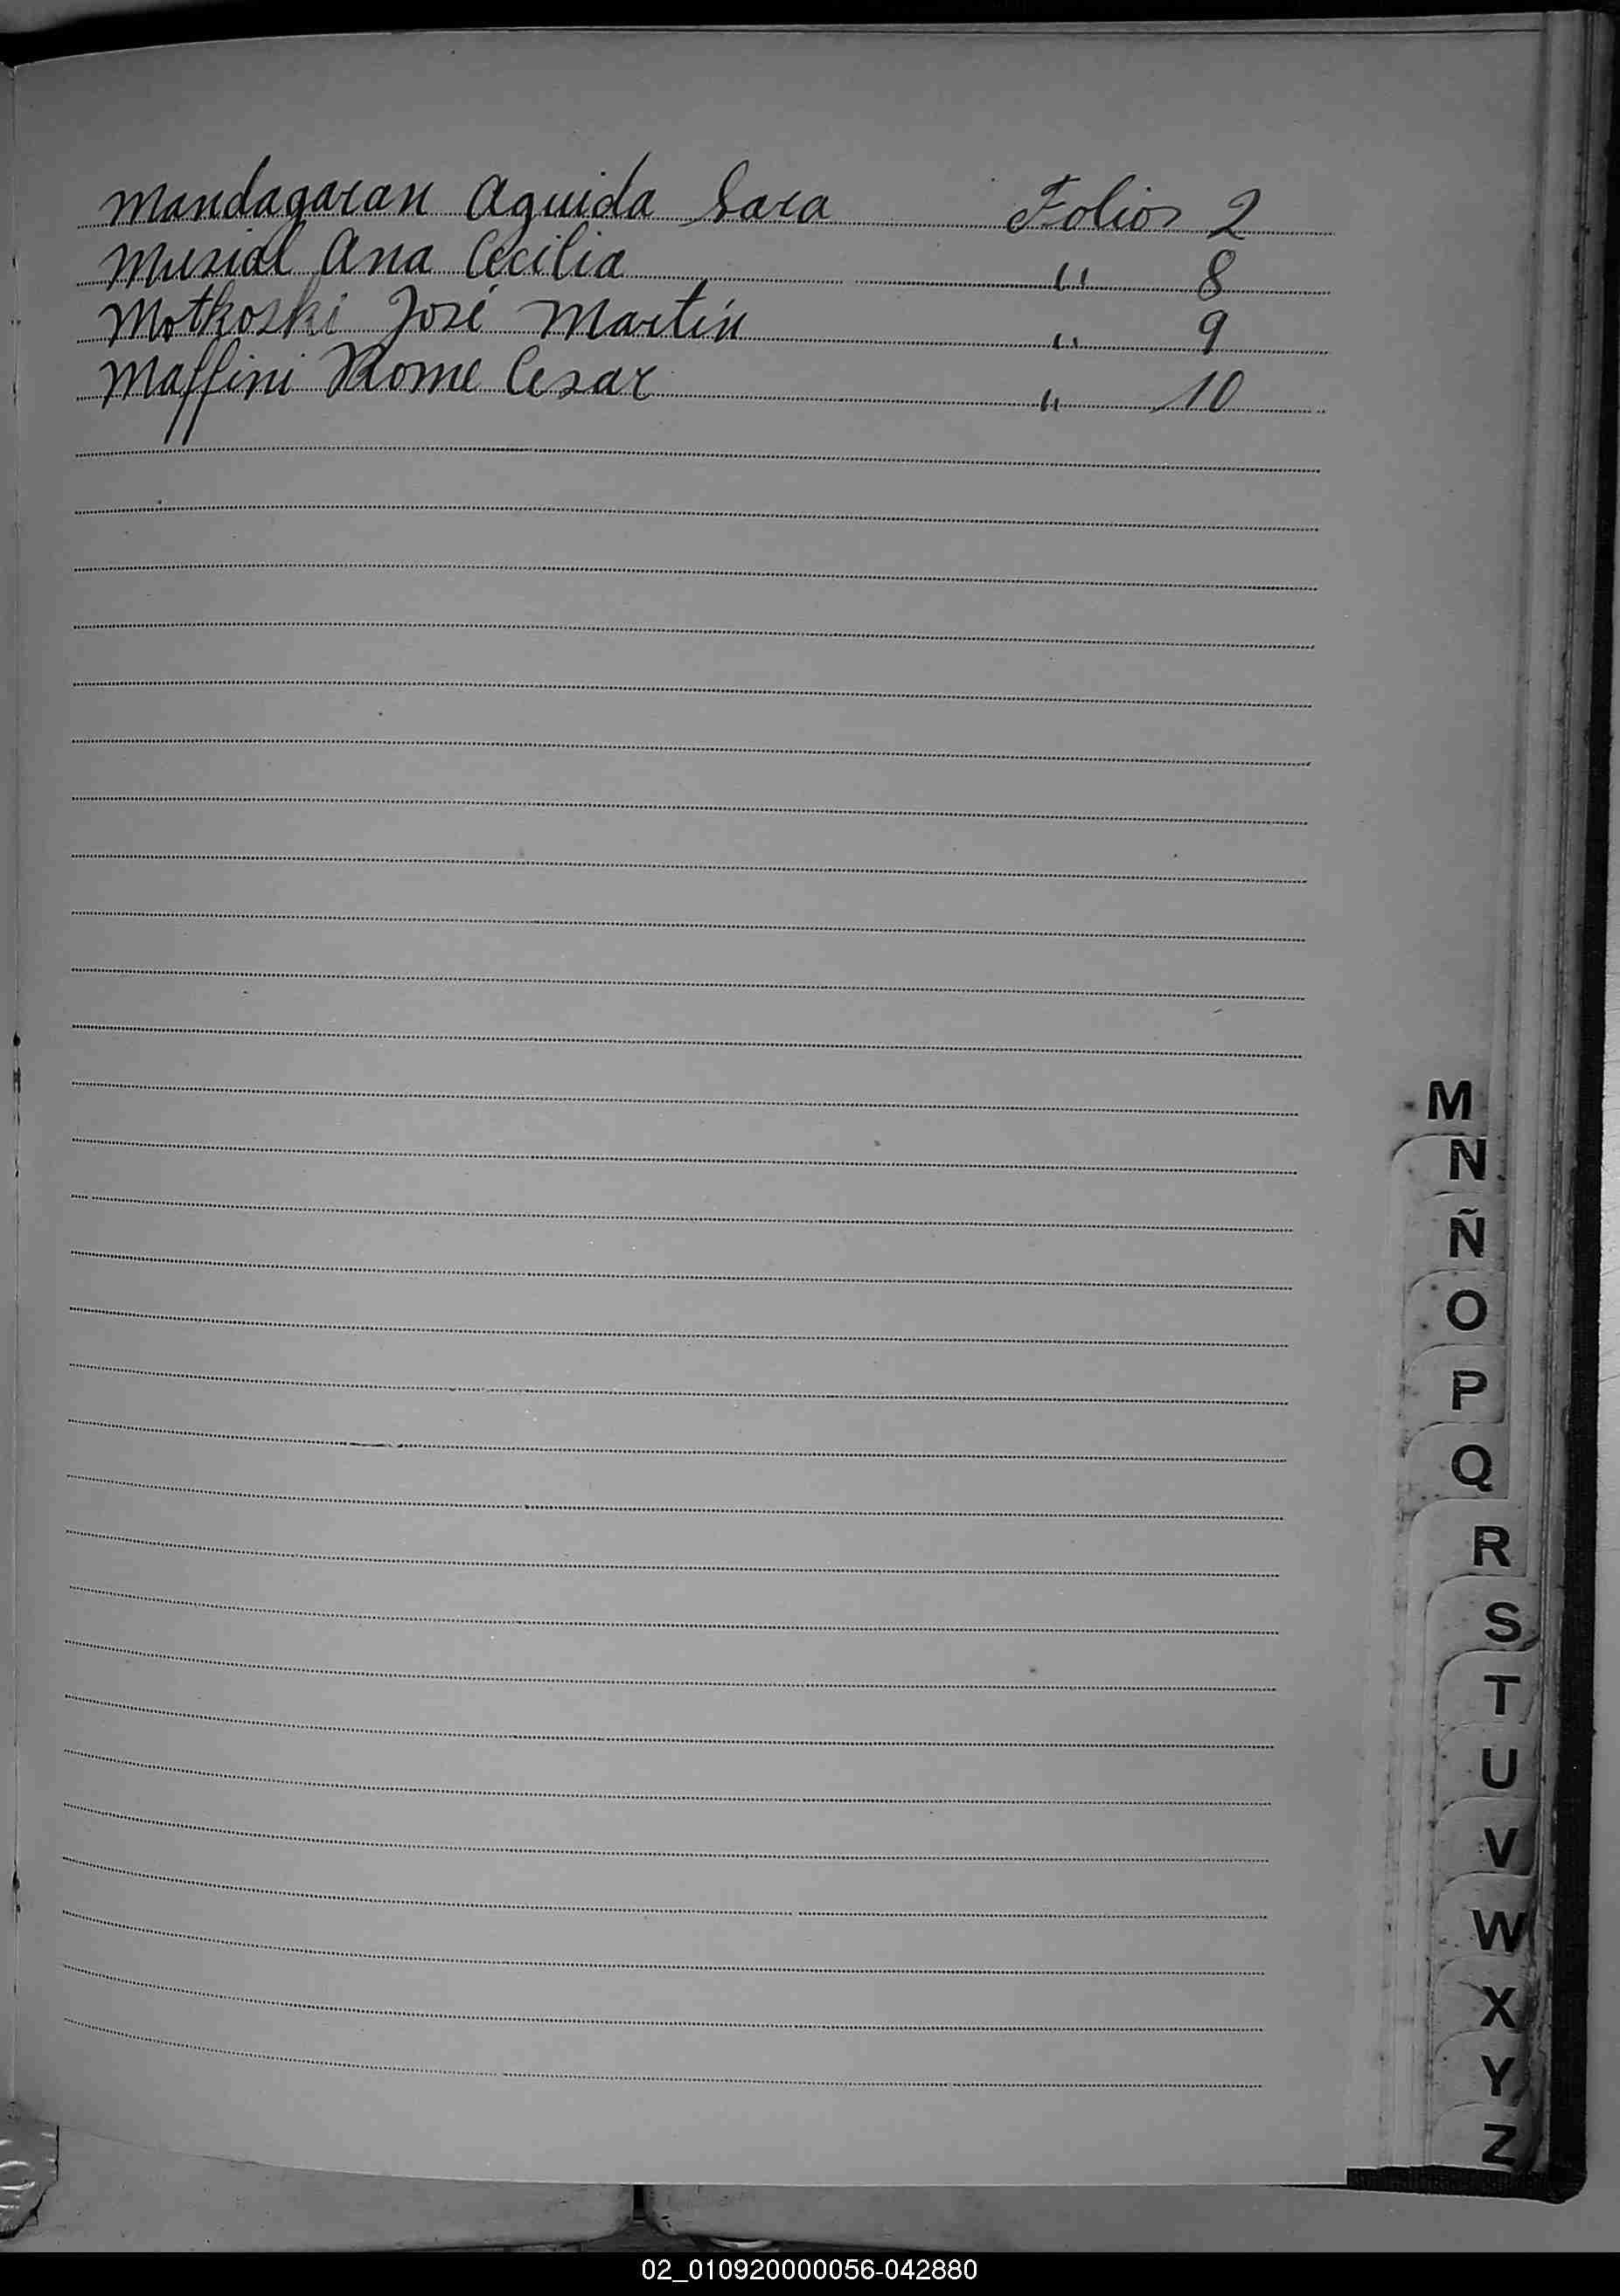 Mandagaran Aguida Sara Folios 2
Musial Ana Cecilia " 8
Motkoski José Martín " 9
Maffini Rome Cesar " 10
M
N
Ñ
O
P
Q
R
S
T
U
V
W
X
Y
Z
02_010920000056-042880